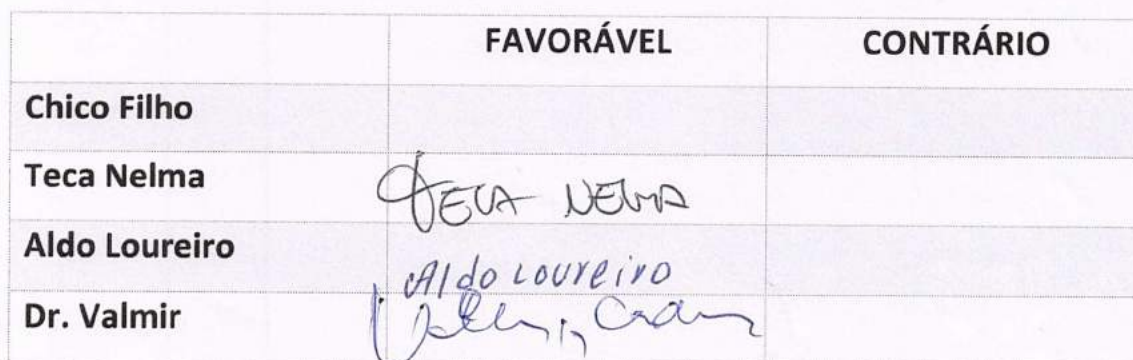 FAVORÁVEL CONTRÁRIO
Chico Filho
Teca Nelma TECA NELMA
Aldo Loureiro Aldo Loureiro
Dr. Valmir